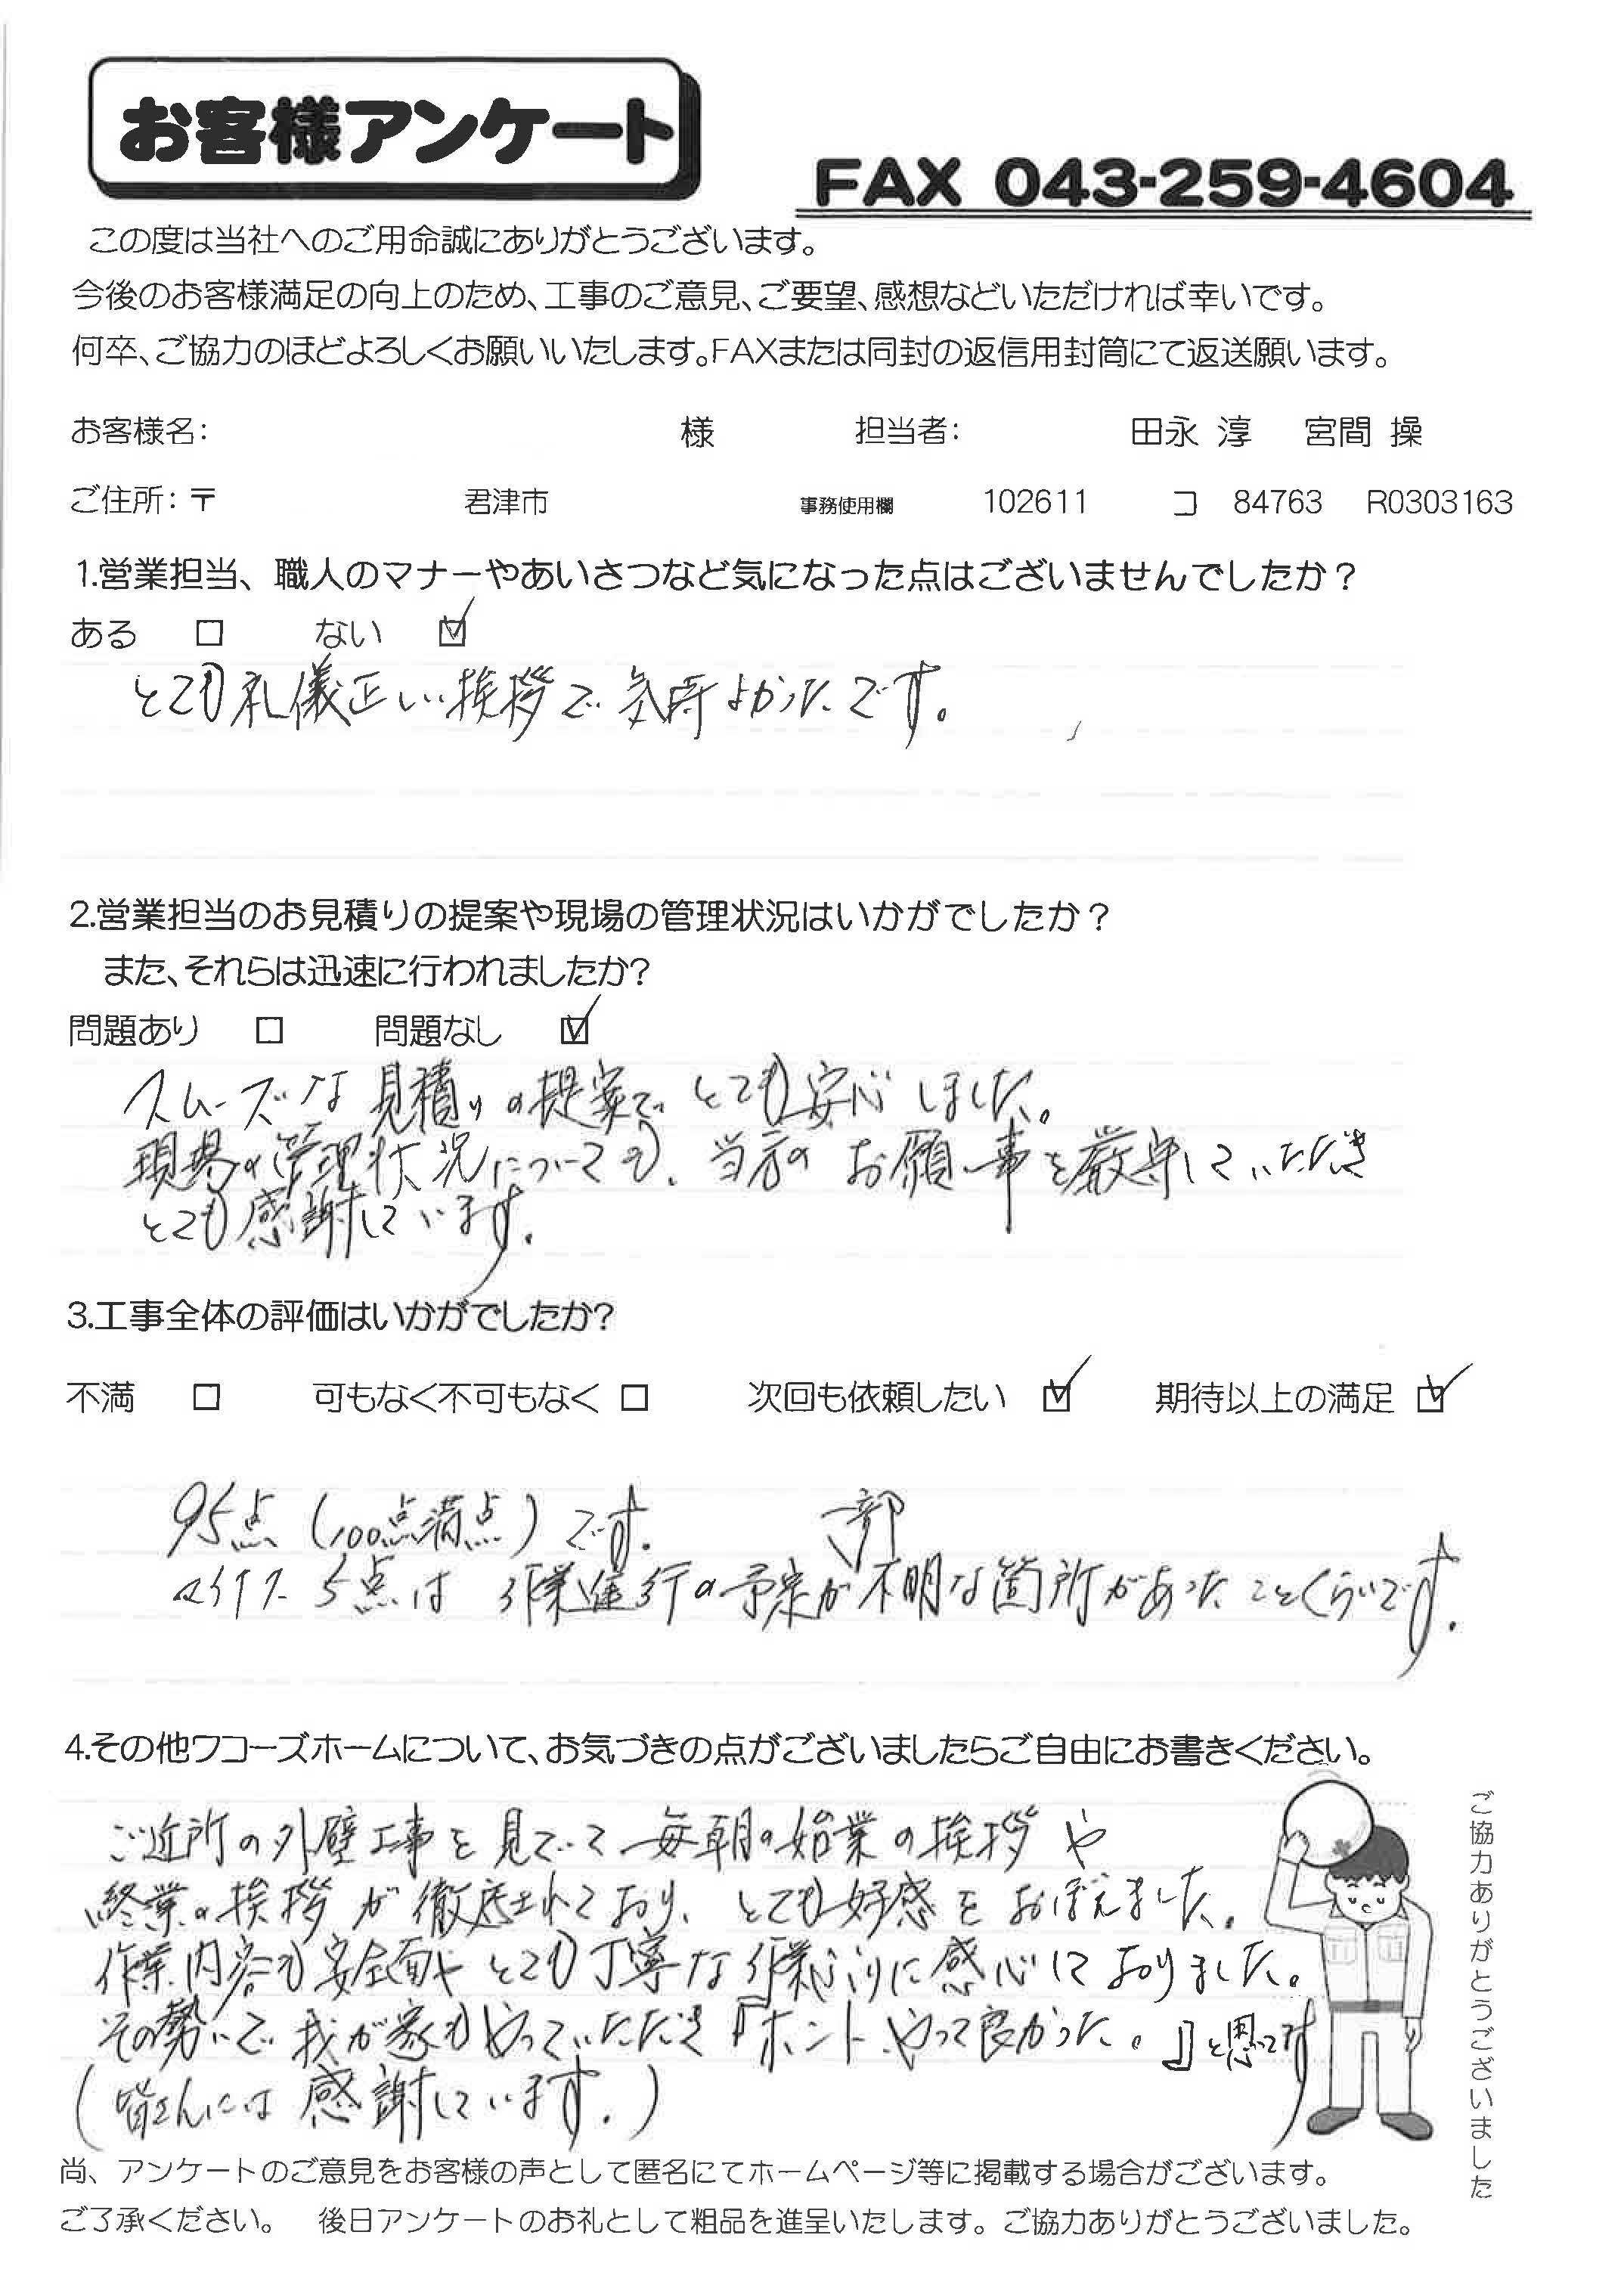 お客様アンケート
FAX 043-259-4604
この度は当社へのご用命誠にありがとうございます。
今後のお客様満足の向上のため、工事のご意見、ご要望、感想などいただければ幸いです。
何卒、ご協力のほどよろしくお願いいたします。FAXまたは同封の返信用封筒にて返送願います。
お客様名： 様 担当者： 田永 淳 宮間 操
ご住所：〒 君津市 事務使用欄 102611 コ 84763 R0303163
1.営業担当、職人のマナーやあいさつなど気になった点はございませんでしたか？
ある □ ない ☑
とても礼儀正しい挨拶で気持よかったです。
2.営業担当のお見積りの提案や現場の管理状況はいかがでしたか？
また、それらは迅速に行われましたか?
問題あり □ 問題なし ☑
スムーズな見積りの提案で、とても安心しました。
現場の管理状況についても、当方のお願い事を厳守していただき
とても感謝しています。
3.工事全体の評価はいかがでしたか?
不満 □ 可もなく不可もなく □ 次回も依頼したい ☑ 期待以上の満足 ☑
95点（100点満点）です。 一部
マイナス5点は 作業進行の予定が不明な箇所があったことくらいです。
4.その他ワコーズホームについて、お気づきの点がございましたらご自由にお書きください。
ご近所の外壁工事を見ていて毎朝の始業の挨拶や
終業の挨拶が徹底されており、とても好感をおぼえました。
作業内容も安全面やとても丁寧な作業ぶりに感心しておりました。
その勢いで我が家もやっていただき『ホントやって良かった。』と思ってます
（皆さんには感謝しています。）
ご協力ありがとうございました
尚、アンケートのご意見をお客様の声として匿名にてホームページ等に掲載する場合がございます。
ご了承ください。 後日アンケートのお礼として粗品を進呈いたします。ご協力ありがとうございました。